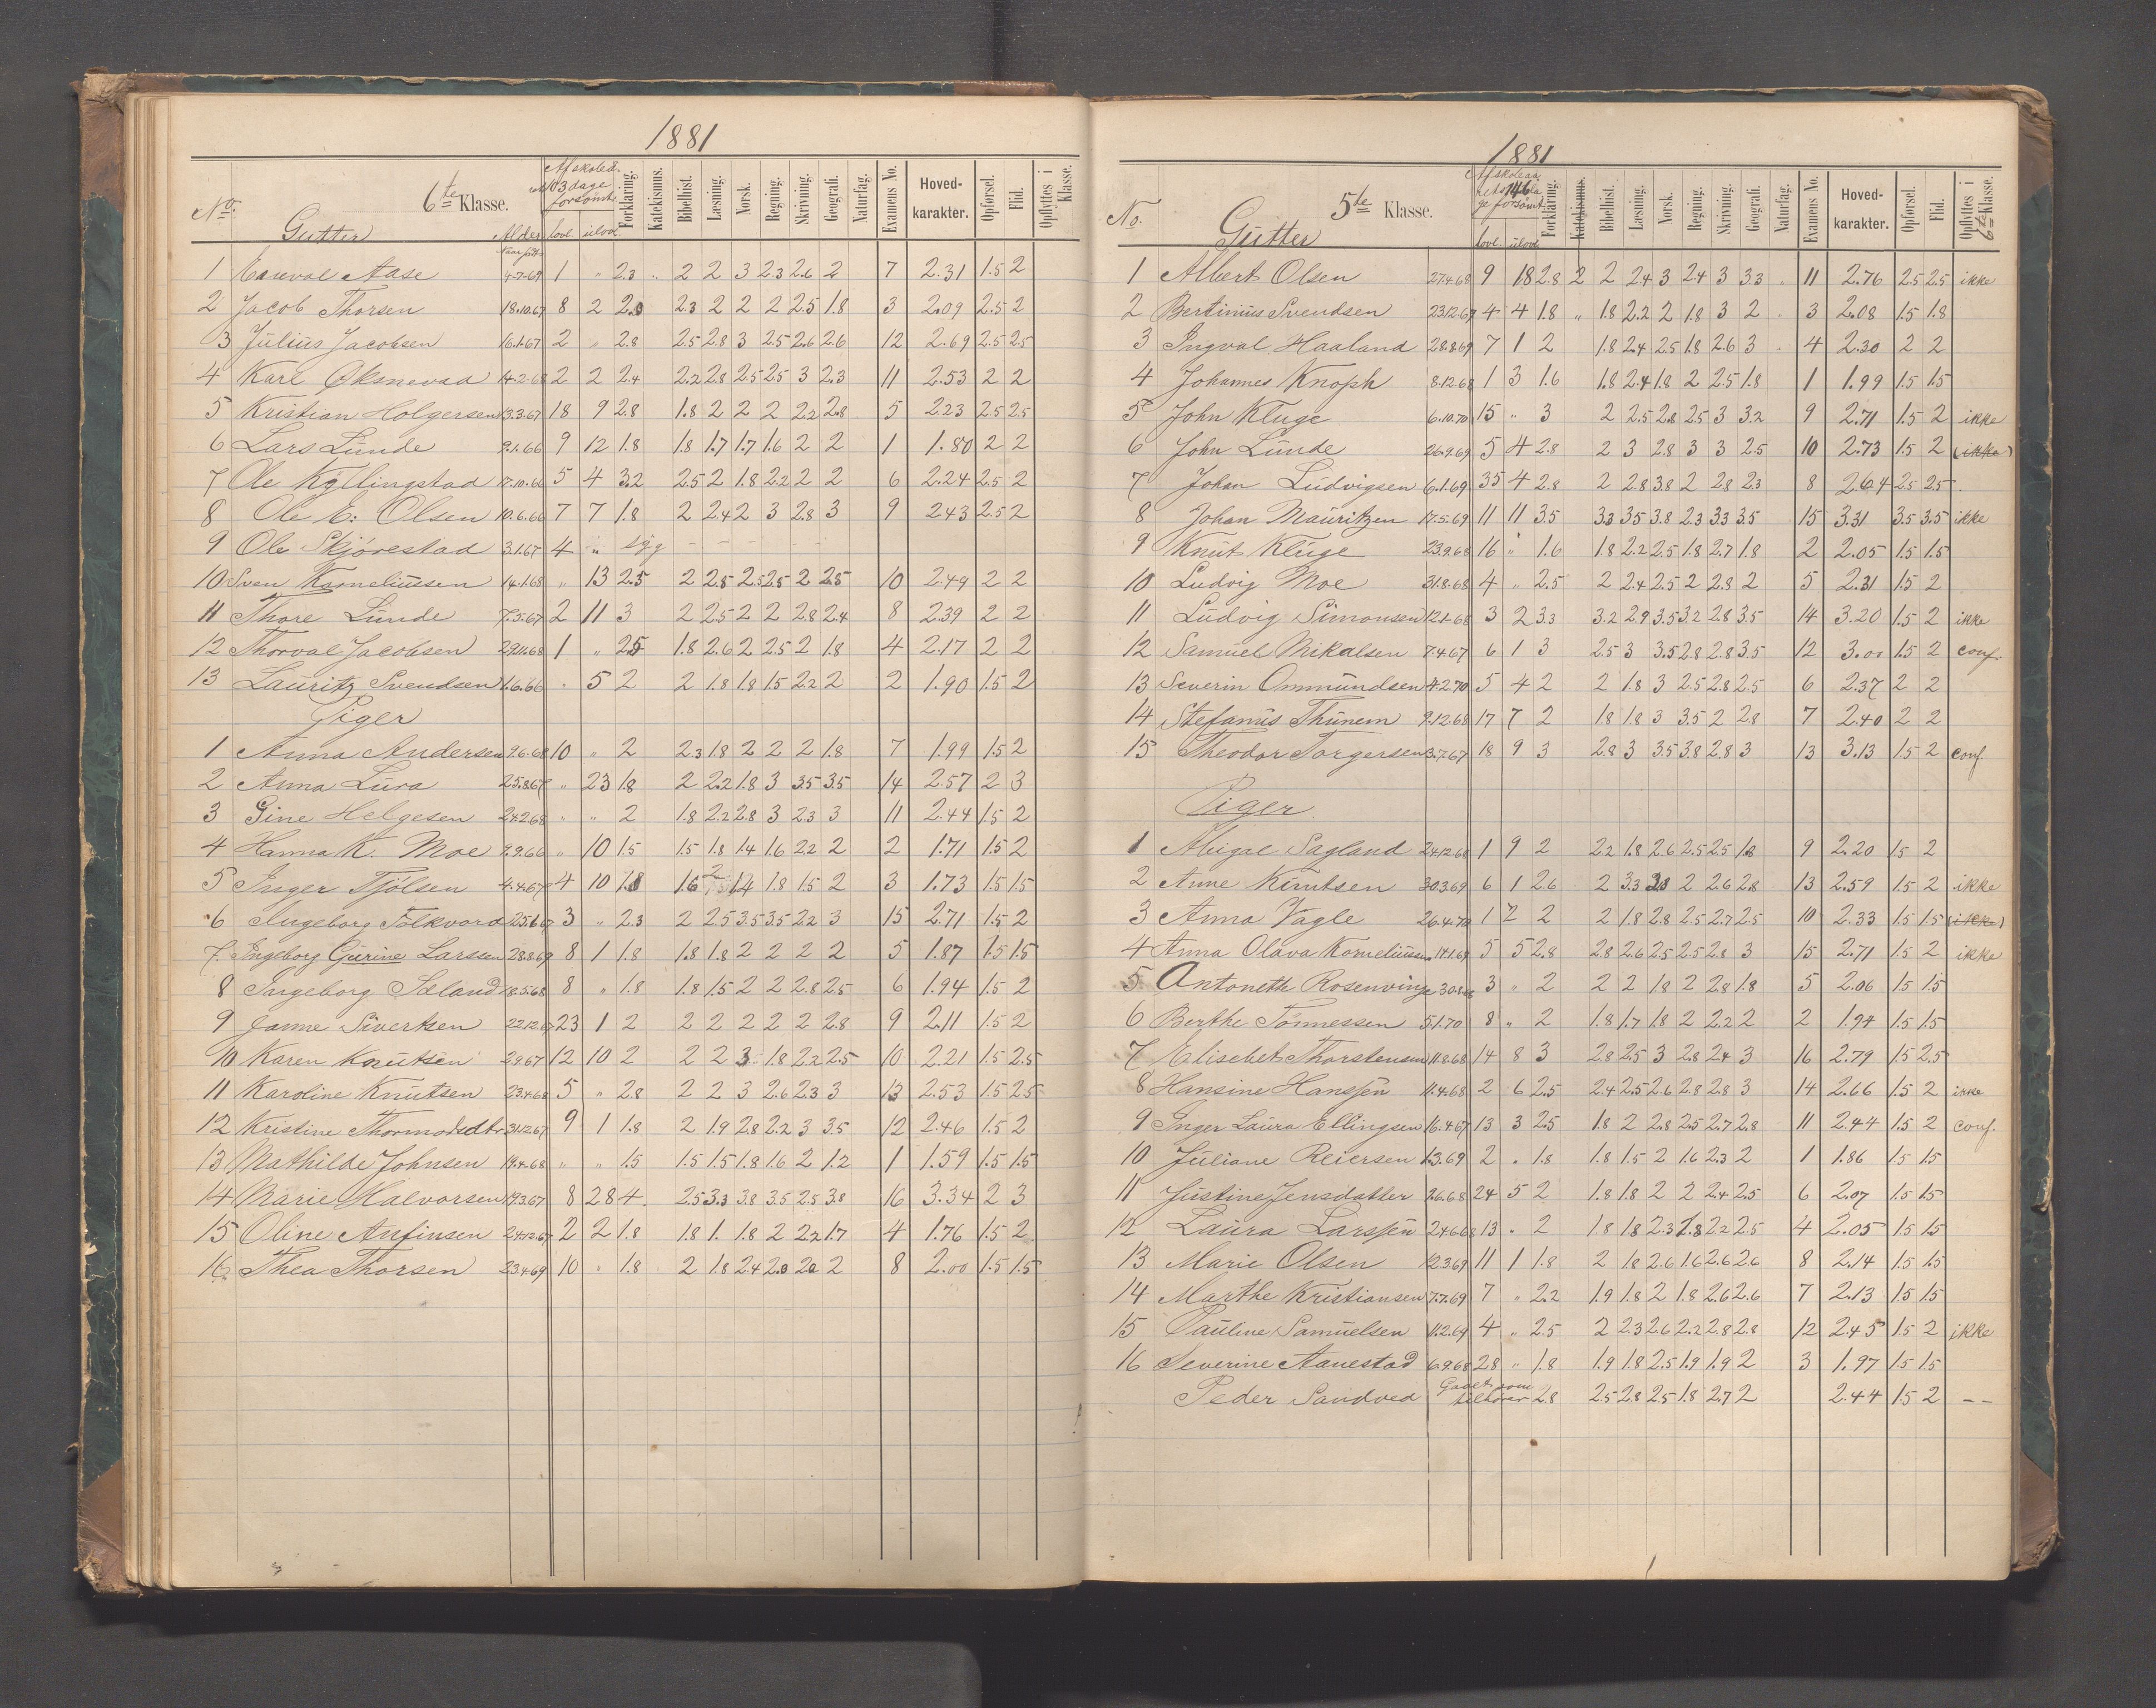 1881
No. 6te Klasse. Af skoled. 103 dage forsømt Forklaring. Katekismus. Bibelhist. Læsning. Norsk. Regning. Skrivning. Geografi. Naturfag. Examens No. Hoved-karakter. Opførsel. Flid. Opflyttes i Klasse.
Gutter Alder lovl. ulovl.
1 Enevval Aase 4-7-69 1 " 2.3 " 2 2 3 2.3 2.6 2 7 2.31 1.5 2
2 Jacob Thorsen 18.10.67 8 2 2.0 2.3 2 2 2 2.5 1.8 3 2.09 2.5 2
3 Julius Jacobsen 16.1.67 2 " 2.8 2.5 2.8 3 2.5 2.6 2.6 12 2.69 2.5 2.5
4 Karl Oksnevad 14.2.68 2 2 2.4 2.2 2.8 2.5 2.5 3 2.3 11 2.53 2 2
5 Kristian Holgersen 13.3.67 18 9 2.8 1.8 2 2 2 2.2 2.8 5 2.23 2.5 2.5
6 Lars Lunde 9.1.66 9 12 1.8 1.8 1.7 1.7 1.6 2 2 1 1.80 2 2
7 Ole Kyllingstad 17.10.66 5 4 3.2 2.5 2 1.8 2.2 2 2 6 2.24 2.5 2
8 Ole E. Olsen 10.6.66 7 7 1.8 2 2.4 2 3 2.8 3 9 2.43 2.5 2
9 Ole Skjørestad 3.1.67 4 " syg - - - - -
10 Sven Korneliussen 14.1.68 " 13 2.5 2 2.8 2.5 2.8 2 2.5 10 2.49 2 2
11 Thore Lunde 7.5.67 2 11 3 2 2.5 2 2 2.8 2.4 8 2.39 2 2
12 Thorval Jacobsen 29.11.68 1 " 2.5 1.8 2.6 2 2.5 2 1.8 4 2.17 2 2
13 Lauritz Svendsen 1.6.66 " 5 2 2 1.8 1.8 1.5 2.2 2 2 1.90 1.5 2
Piger
1 Anna Andersen 9.6.68 10 " 2 2.3 1.8 2 2 2 1.8 7 1.99 1.5 2
2 Anna Lura 25.8.67 " 23 1.8 2 2.2 1.8 3 3.5 3.5 14 2.57 2 3
3 Gine Helgesen 24.2.68 " " 2 1.8 2.2 2.8 3 2.3 3 11 2.44 1.5 2
4 Hanna K. Moe 9.9.66 " 10 1.5 1.5 1.8 1.4 1.6 2.2 2 2 1.71 1.5 2
5 Inger Tjølsen 4.4.67 4 10 1.8 1.6 2 1.4 1.8 1.5 2 3 1.73 1.5 1.5
6 Ingeborg Folkvord 25.1.67 3 " 2.3 2 2.5 3.5 3.5 2.2 3 15 2.71 1.5 2
7 Ingeborg Gurine Larssen 28.8.69 8 1 1.8 1.8 1.8 2 2 2 2 5 1.87 1.5 1.5
8 Ingeborg Sæland 18.5.68 8 " 1.8 1.8 1.5 2 2 2.8 2.5 6 1.94 1.5 2
9 Janne Sivertsen 22.12.67 23 1 2 2 2 2 2 2 2.8 9 2.11 1.5 2
10 Karen Knutsen 2.9.67 12 10 2 2 2 3 1.8 2.2 2.5 10 2.21 1.5 2.5
11 Karoline Knutsen 23.4.68 5 " 2.8 2 2 3 2.6 2.3 3 13 2.53 1.5 2.5
12 Kristine Thormodsdtr 31.12.67 9 1 1.8 2 1.9 2.8 2.2 3 3.5 12 2.46 1.5 2
13 Mathilde Johnsen 19.4.68 " " 1.5 1.5 1.5 1.8 1.6 2 1.2 1 1.59 1.5 1.5
14 Marie Halvorsen 19.3.67 8 28 4. 2.5 3.3 3.8 3.5 2.5 3.8 16 3.34 2 3
15 Oline Anfinsen 24.12.67 2 2 1.8 1.8 1. 1.8 2 2.2 1.7 4 1.76 1.5 2
16 Thea Thorsen 23.4.69 10 " 1.8 2 1.8 2.4 2.0 2.0 2 8 2.00 1.5 1.5
1881
No. 5te Klasse. 146 forsømt Forklaring. Katekismus. Bibelhist. Læsning. Norsk. Regning. Skrivning. Geografi. Naturfag. Examens No. Hoved-karakter. Opførsel. Flid. Opflyttes i 6te Klasse.
Gutter lovl. ulovl.
1 Albert Olsen 27.4.68 9 18 2.8 2 2 2.4 3 2.4 3 3.3 " 11 2.76 2.5 2.5 ikke
2 Bertinius Svendsen 23.12.67 4 4 1.8 " 1.8 2.2 2 1.8 3 2 3 2.08 1.5 1.8
3 Ingval Haaland 28.8.69 7 1 2 1.8 2.4 2.5 1.8 2.6 3 4 2.30 2 2
4 Johannes Knoph 8.12.68 1 3 1.6 1.8 2.4 1.8 2 2.5 1.8 1 1.99 1.5 1.5
5 John Kluge 6.10.70 15 " 3 2 2.5 2.8 2.5 3 3.2 9 2.71 1.5 2 ikke
6 John Lunde 26.9.69 5 4 2.8 2 3 2.8 3 3 2.5 10 2.73 1.5 2 (ikke)
7 Johan Ludvigsen 6.1.69 35 4 2.8 2 2.8 3.8 2 2.8 2.3 8 2.64 2.5 2.5
8 Johan Mauritzen 17.5.69 11 11 3.5 3.3 3.5 3.8 2.3 3.3 3.5 15 3.31 3.5 3.5 ikke
9 Knut Kluge 23.9.68 16 " 1.6 1.8 2.2 2.5 1.8 2.7 1.8 2 2.05 1.5 1.5
10 Ludvig Moe 31.8.68 4 " 2.5 2 2.4 2.5 2 2.8 2 5 2.31 1.5 2
11 Ludvig Simonsen 12.1.68 3 2 3.3 3.2 2.9 3.5 3.2 2.8 3.5 14 3.20 1.5 2 ikke
12 Samuel Mikalsen 7.4.67 6 1 3 2.5 3 3.5 2.8 2.8 3.5 12 3.00 1.5 2 conf.
13 Severin Ommundsen 4.2.70 5 4 2 2 1.8 3 2.5 2.8 2.5 6 2.37 2 2
14 Stefanus Thunem 9.12.68 17 7 2 1.8 1.8 3 3.5 2 2.8 7 2.40 2 2
15 Theodor Torgersen 3.7.67 18 9 3 2.8 3 3.5 3.8 2.8 3 13 3.13 1.5 2 conf.
Piger
1 Abigal Sagland 24.12.68 1 9 2 2.2 1.8 2.6 2.5 2.5 1.8 9 2.20 1.5 2
2 Anne Knutsen 30.3.69 6 1 2.6 2 3.3 3.3 2 2.6 2.8 13 2.59 1.5 2 ikke
3 Anna Vagle 26.4.70 1 2 2 2 1.8 2.8 2.5 2.7 2.5 10 2.33 1.5 1.5 (ikke)
4 Anna Olava Korneliussen 14.1.69 5 5 2.8 2.8 2.6 2.5 2.5 2.8 3 15 2.71 1.5 2 ikke
5 Antoneth Rosenvinge 30.8.68 3 " 2 2 2 1.8 2 2.8 1.8 5 2.06 1.5 1.5
6 Berthe Tønnessen 5.1.70 8 " 2 1.8 1.7 1.8 2 2.2 2 2 1.94 1.5 1.5
7 Elischet Thorstensen 11.8.68 14 8 3 2.8 2.5 3 2.8 2.4 3 16 2.79 1.5 2.5
8 Hansine Hanssen 11.4.68 2 6 2.5 2.4 2.5 2.6 2.8 2.8 3 14 2.66 1.5 2 ikke
9 Inger Laura Ellingsen 16.4.67 13 3 2.5 1.8 2 2.8 2.5 2.7 2.8 11 2.44 1.5 2 conf.
10 Juliane Reiersen 1.3.69 2 " 1.8 1.8 1.5 2 1.6 2.3 2 1 1.86 1.5 1.5
11 Justine Jensdatter 9.6.68 24 5 2 1.8 1.8 2 2 2.4 2.5 6 2.07 1.5 1.5
12 Laura Larssen 24.6.68 13 " 2 1.8 1.8 2.3 1.8 2.2 2.5 4 2.05 1.5 1.5
13 Marie Olsen 12.3.69 11 1 1.8 2 1.8 2.6 1.6 2.6 2.6 8 2.14 1.5 1.5
14 Marthe Kristiansen 7.7.69 7 " 2.2 1.9 1.8 2 1.8 2.6 2.6 7 2.13 1.5 1.5
15 Pauline Samuelsen 11.2.69 4 " 2.5 2 2.3 2.6 2.2 2.8 2.8 12 2.45 1.5 2 ikke
16 Severine Aanestad 6.9.68 28 " 1.8 1.9 1.8 2.5 1.9 1.9 2 3 1.97 1.5 1.5
Peder Sandved som tilhører 2.8 2.5 2.8 2.5 1.8 2.7 2 2.44 1.5 2 - -